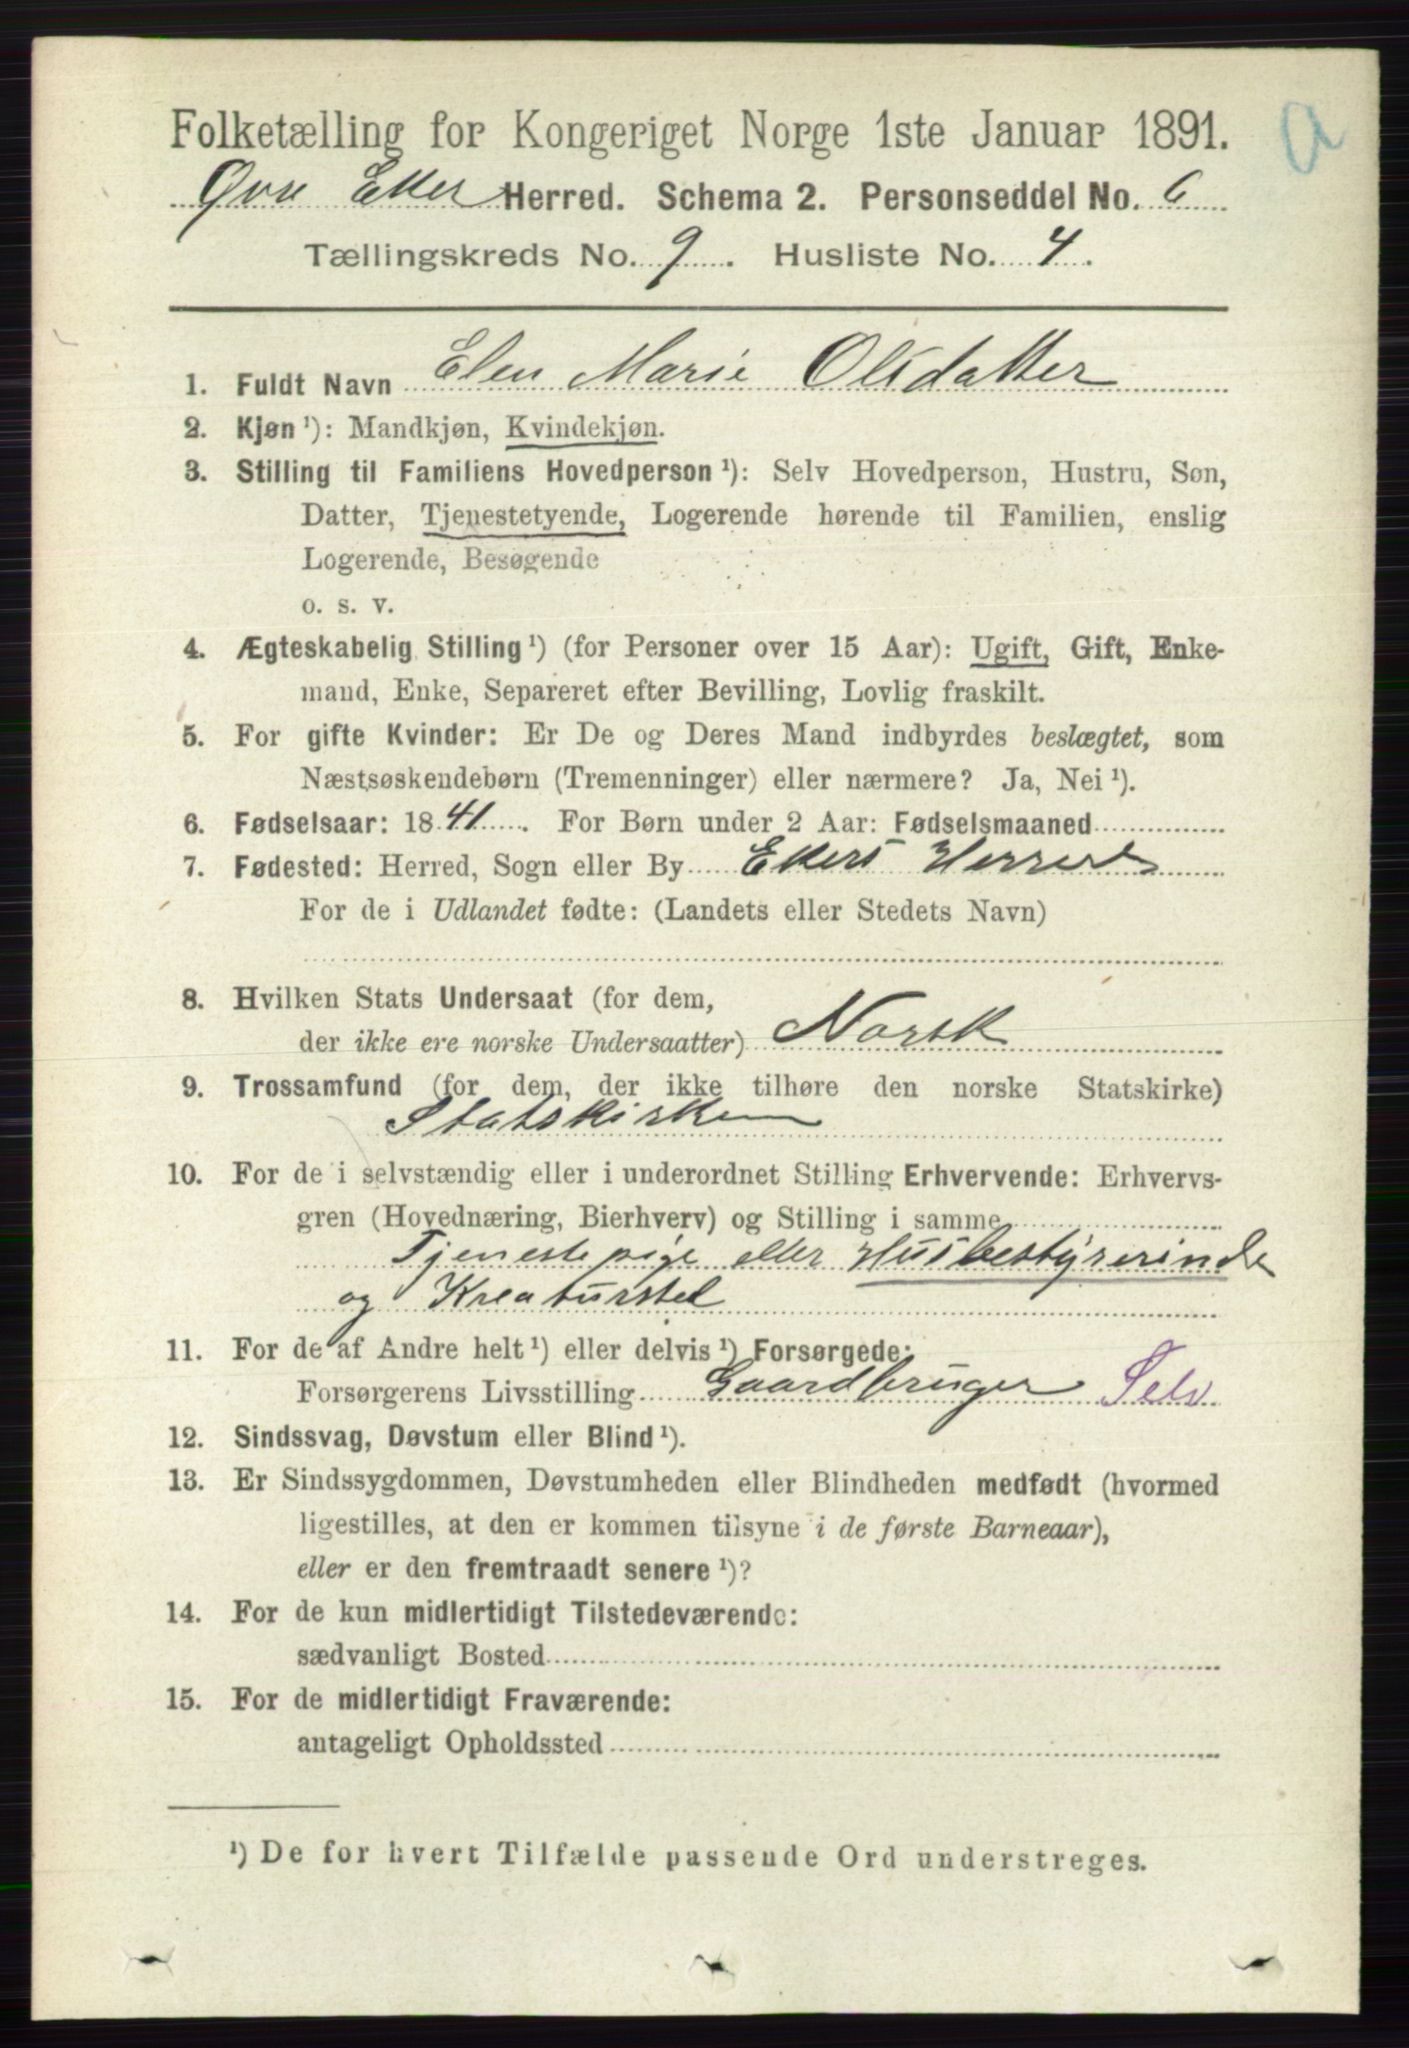 Folketælling for Kongeriget Norge 1ste Januar 1891.
a
Øvre Eker Herred. Schema 2. Personseddel No. 6
Tællingskreds No. 9. Husliste No. 4.
1. Fuldt Navn Elen Marie Olsdatter
2. Kjøn ¹): Mandkjøn, Kvindekjøn.
3. Stilling til Familiens Hovedperson ¹): Selv Hovedperson, Hustru, Søn,
Datter, Tjenestetyende, Logerende hørende til Familien, enslig
Logerende, Besøgende
o. s. v.
4. Ægteskabelig Stilling ¹) (for Personer over 15 Aar): Ugift, Gift, Enke-
mand, Enke, Separeret efter Bevilling, Lovlig fraskilt.
5. For gifte Kvinder: Er De og Deres Mand indbyrdes beslægtet, som
Næstsøskendebørn (Tremenninger) eller nærmere? Ja, Nei ¹).
6. Fødselsaar: 1841. For Børn under 2 Aar: Fødselsmaaned
7. Fødested: Herred, Sogn eller By Ekers Herred
For de i Udlandet fødte: (Landets eller Stedets Navn)
8. Hvilken Stats Undersaat (for dem,
der ikke ere norske Undersaatter) Norsk
9. Trossamfund (for dem, der ikke tilhøre den norske Statskirke)
Statskirken
10. For de i selvstændig eller i underordnet Stilling Erhvervende: Erhvervs-
gren (Hovednæring, Bierhverv) og Stilling i samme
Tjenestepige eller Husbestyrerinde
og Kreaturstel
11. For de af Andre helt ¹) eller delvis ¹) Forsørgede:
Forsørgerens Livsstilling Gaardbruger Selv
12. Sindssvag, Døvstum eller Blind ¹).
13. Er Sindssygdommen, Døvstumheden eller Blindheden medfødt (hvormed
ligestilles, at den er kommen tilsyne i de første Barneaar),
eller er den fremtraadt senere ¹)?
14. For de kun midlertidigt Tilstedeværende:
sædvanligt Bosted
15. For de midlertidigt Fraværende:
antageligt Opholdssted
¹) De for hvert Tilfælde passende Ord understreges.